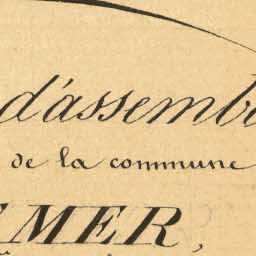 d'assemb
de la commune
MER,